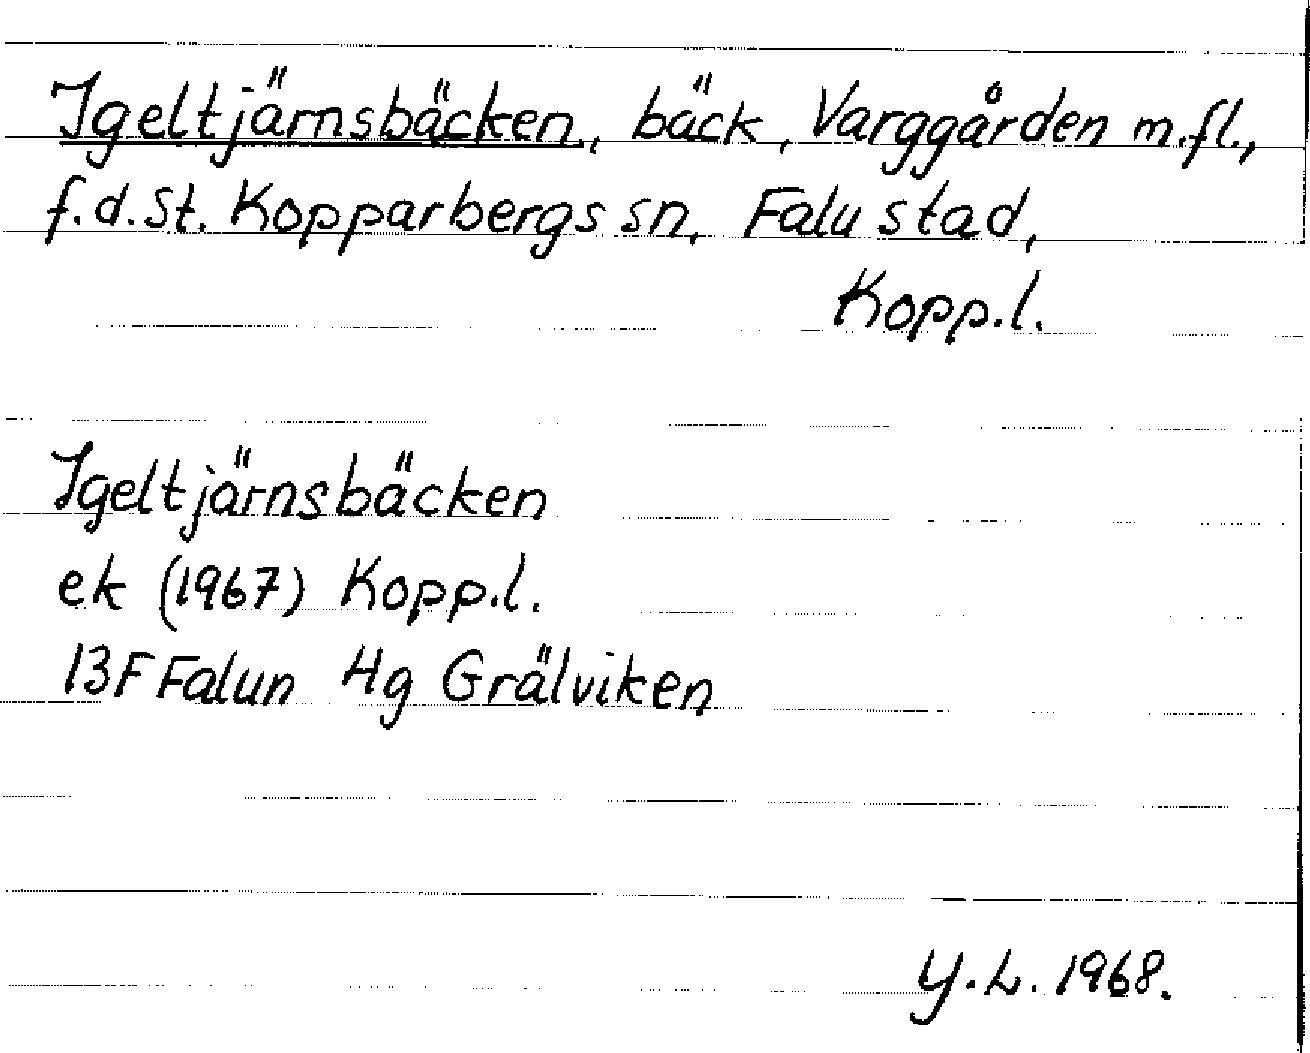 Igeltjärnsbäcken, bäck, Varggården m.fl.,
f.d. St. Kopparbergs sn, Falu stad,
Kopp.l.
Igeltjärnsbäcken
ek (1967) Kopp.l.
13F Falun 4g Grälviken
Y.L. 1968.